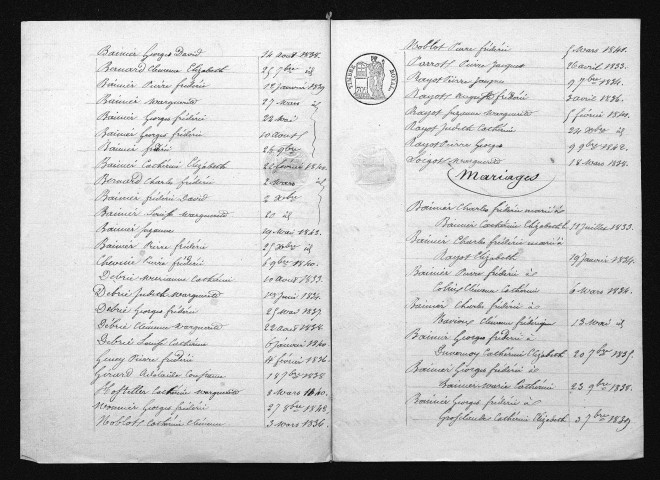 Bainier Georges David 14 aout 1838.
Bernard Clémence Elizabeth 25 7bre id
Bainier Pierre frédéric 12 Janvier 1839
Bainier Marguerite 27 Mars id
Bainier Georges frédéric 22 Mai
Bainier Georges frédéric 10 aout
Bainier frédéric 24 9bre
Bainier Catherine Elizabeth 22 février 1840.
Bernard Charles frédéric 2 Mars id
Bainier frédéric David 2 Xbre
Bainier Louise Marguerite 20 id
Bainier Suzanne 19 Mai 1842.
Bainier Pierre frédéric 25 Xbre id
Pierre frédéric 6 9bre 1840.
Debrie Catherine 10 aout 1833.
Debrie Judith Marguerite 1834.
Debrie Georges frédéric 25 Mai 1837
Debrie Clémence Marguerite 22 aout 1838.
Debrie Louise Catherine 6 Janvier 1840
Pierre frédéric 14 février 1836
Girard Adelaïde Constance 18 7bre 1838
Catherine Marguerite 2 Mars 1840.
Monnier Georges frédéric 27 8bre 1842.
Noblot Catherine Clémence 3 Mars 1836.
Noblot Pierre frédéric 5 Mars 1841.
Parrot Pierre Jacques 26 avril 1833.
Rayot Pierre Jacques 9 7bre 1834.
Rayot Auguste frédéric 3 avril 1836.
Rayot Suzanne Marguerite 5 février 1840.
Rayot Judith Catherine 24 Xbre id
Rayot Pierre Georges 9 9bre 1842.
Marguerite 18 Mars 1838.
Mariages
Bainier Charles frédéric marié à
Bainier Catherine Elizabeth 11 Juillet 1833.
Bainier Charles frédéric marié à
Rayot Elizabeth 19 Janvier 1834.
Bainier Pierre frédéric à
Clémence Catherine 6 Mars 1834.
Bainier Charles frédéric à
Clémence frédérique 13 Mai id
Bainier Georges frédéric à
Duvernoy Catherine Elizabeth 20 7bre 1835.
Bainier Georges frédéric à
Bainier Marie Catherine 23 9bre 1838.
Bainier Georges frédéric à
Grosclaude Catherine Elizabeth 3 7bre 1839